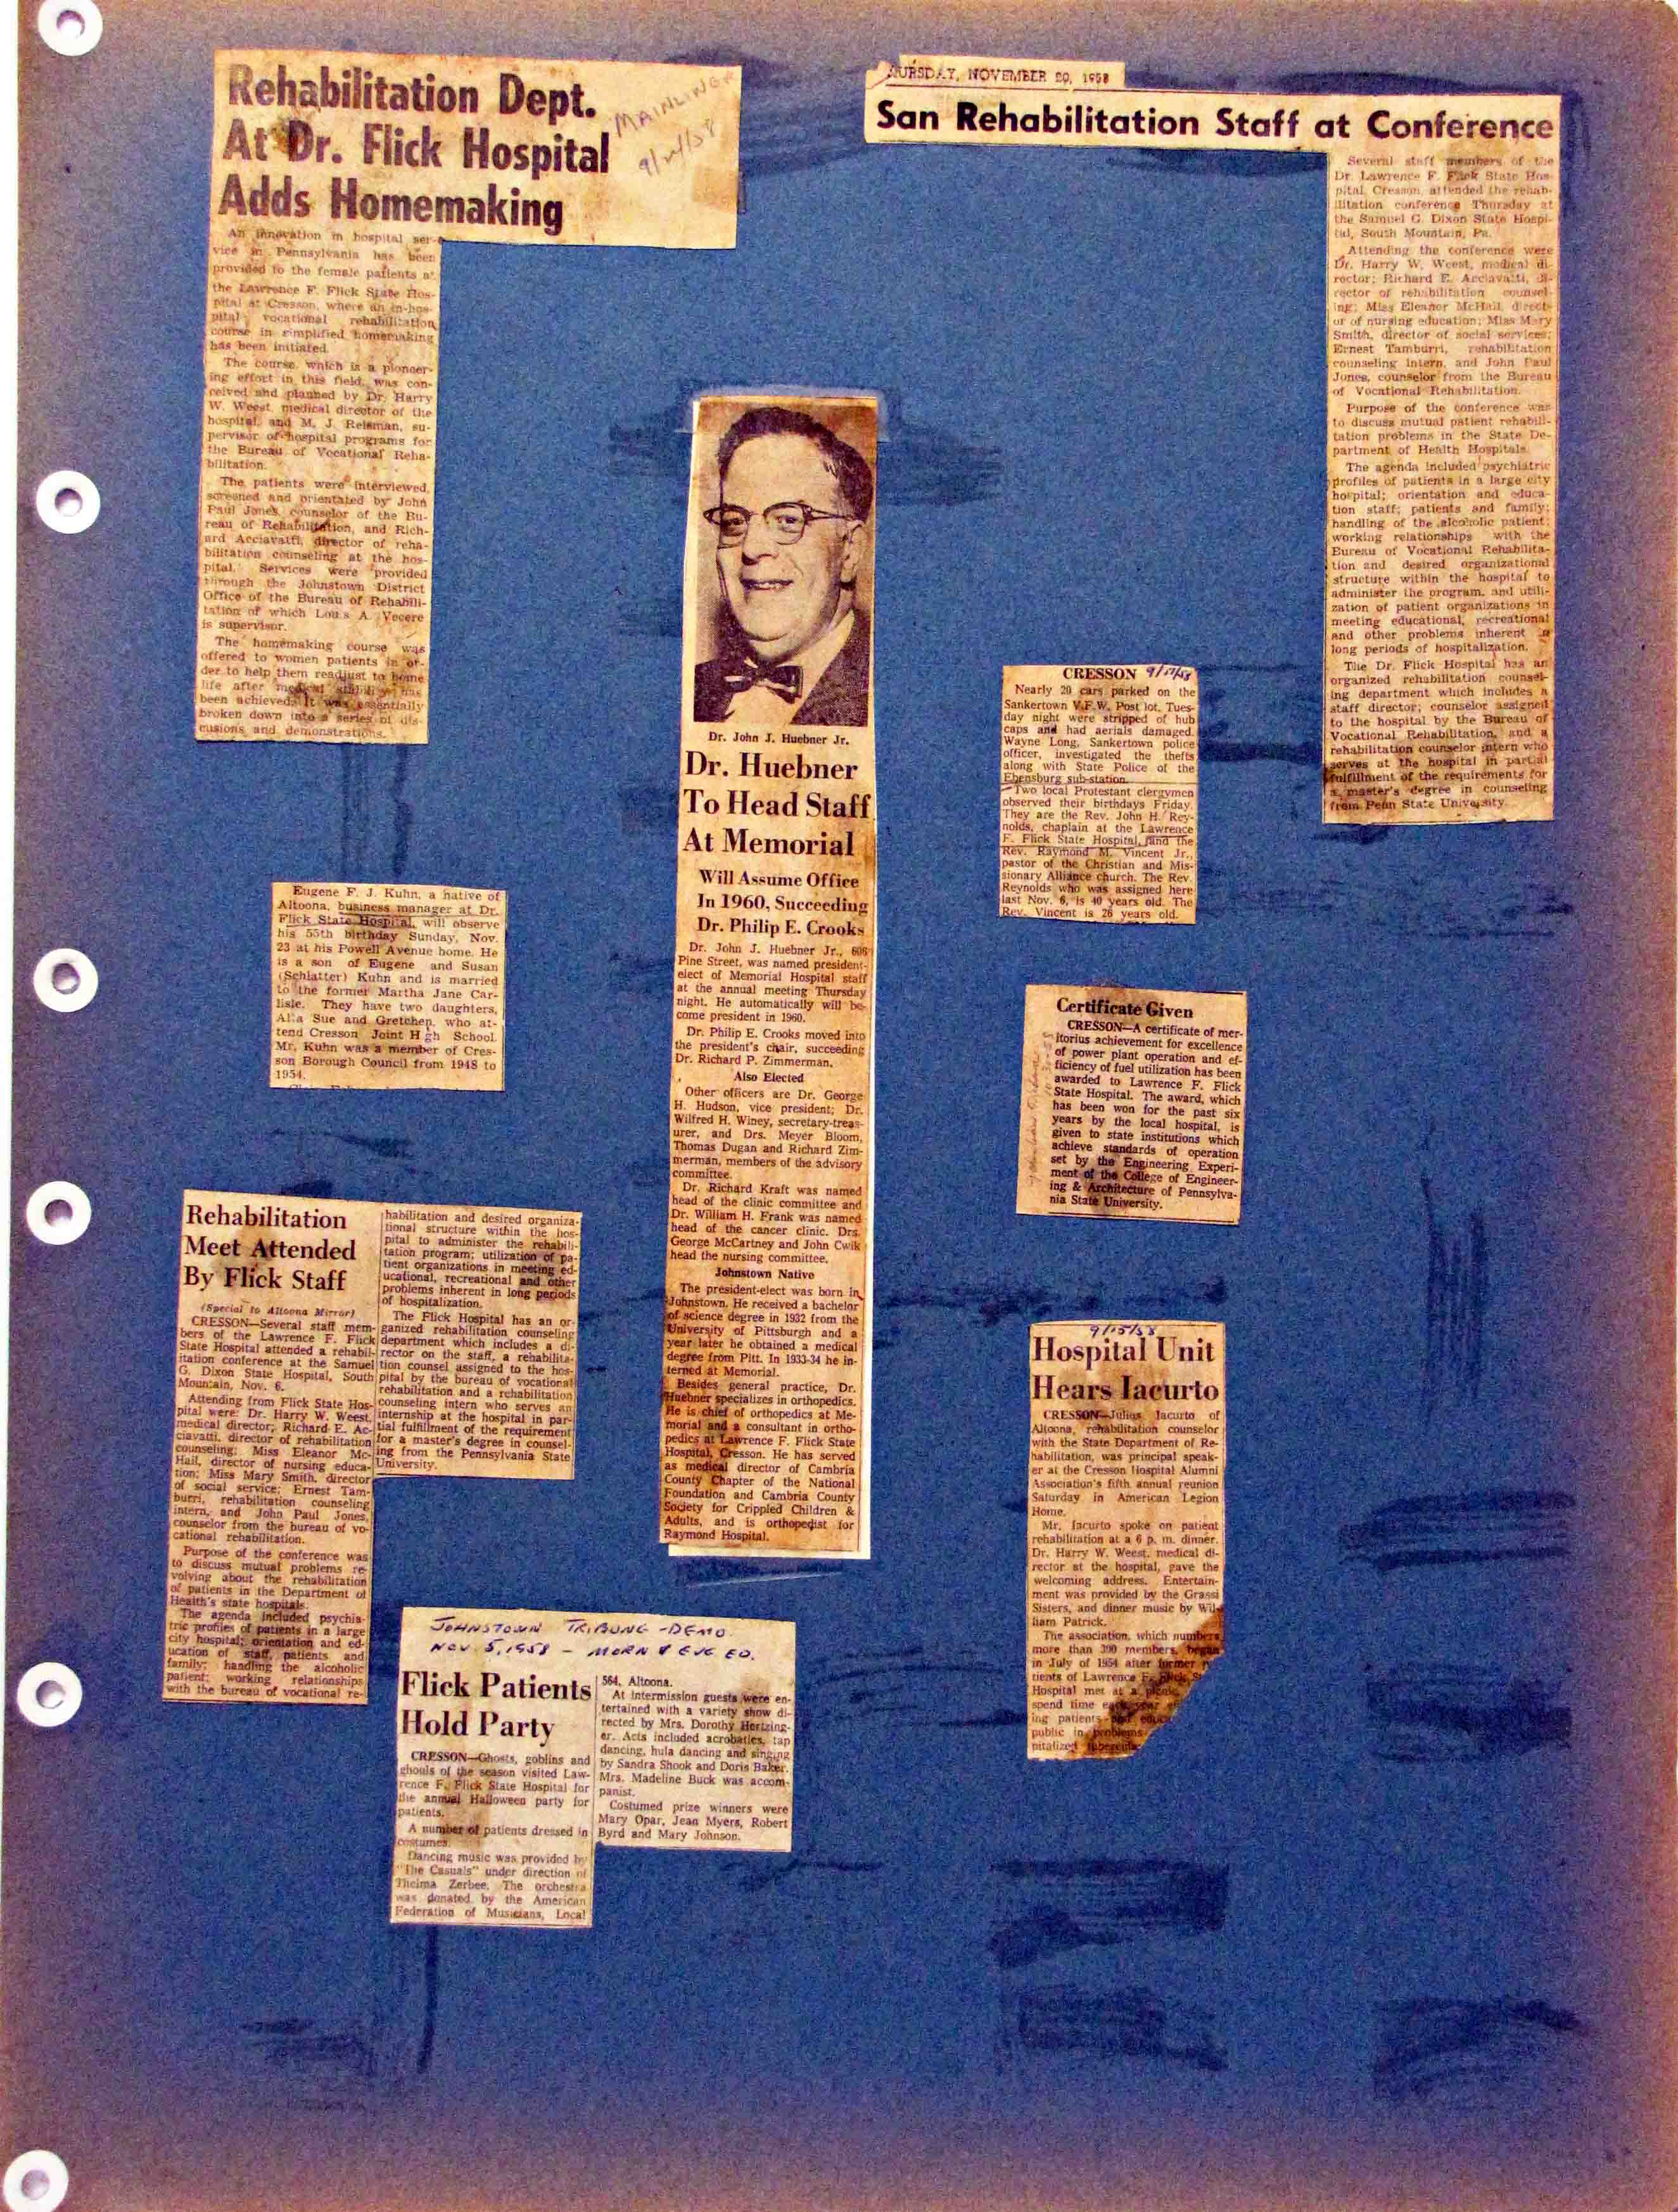 Rehabilitation Dept.
At Dr. Flick Hospital
Adds Homemaking
MAINLINER
An innovation in hospital ser-
vice in Pennsylvania has been
provided to the female patients at
the Lawrence F. Flick State Hos-
pital at Cresson, where an in-hos-
pital vocational rehabilitation
course in simplified homemaking
has been initiated.
The course, which is a pioneer-
ing effort in this field, was con-
ceived and planned by Dr. Harry
W. Weest, medical director of the
hospital, and M. J. Reisman, su-
pervisor of hospital programs for
the Bureau of Vocational Reha-
bilitation.
The patients were interviewed,
screened and orientated by John
Paul Jones, counselor of the Bu-
reau of Rehabilitation, and Rich-
ard Acciavatti, director of reha-
bilitation counseling at the hos-
pital. Services were provided
through the Johnstown District
Office of the Bureau of Rehabili-
tation of which Louis A. Vecere
is supervisor.
The homemaking course was
offered to women patients in or-
der to help them readjust to home
life after medical stability has
been achieved. It was essentially
broken down into a series of dis-
cusions and demonstrations.
THURSDAY, NOVEMBER 20, 1958
San Rehabilitation Staff at Conference
Several staff members of the
Dr. Lawrence F. Flick State Hos-
pital, Cresson, attended the rehab-
ilitation conference Thursday at
the Samuel G. Dixon State Hospi-
tal, South Mountain, Pa.
Attending the conference were
Dr. Harry W. Weest, medical di-
rector; Richard E. Acciavatti, di-
rector of rehabilitation counsel-
ing; Miss Eleanor McHail, direct-
or of nursing education; Miss Mary
Smith, director of social services;
Ernest Tamburri, rehabilitation
counseling intern, and John Paul
Jones, counselor from the Bureau
of Vocational Rehabilitation.
Purpose of the conference was
to discuss mutual patient rehabili-
tation problems in the State De-
partment of Health Hospitals.
The agenda included psychiatric
profiles of patients in a large city
hospital; orientation and educa-
tion staff; patients and family;
handling of the alcoholic patient;
working relationships with the
Bureau of Vocational Rehabilita-
tion and desired organizational
structure within the hospital to
administer the program, and utili-
zation of patient organizations in
meeting educational, recreational
and other problems inherent in
long periods of hospitalization.
The Dr. Flick Hospital has an
organized rehabilitation counsel-
ing department which includes a
staff director; counselor assigned
to the hospital by the Bureau of
Vocational Rehabilitation, and a
rehabilitation counselor intern who
serves at the hospital in partial
fulfillment of the requirements for
a master's degree in counseling
from Penn State University.
Dr. John J. Huebner Jr.
Dr. Huebner
To Head Staff
At Memorial
Will Assume Office
In 1960, Succeeding
Dr. Philip E. Crooks
Dr. John J. Huebner Jr., 606
Pine Street, was named president-
elect of Memorial Hospital staff
at the annual meeting Thursday
night. He automatically will be-
come president in 1960.
Dr. Philip E. Crooks moved into
the president's chair, succeeding
Dr. Richard P. Zimmerman.
Also Elected
Other officers are Dr. George
H. Hudson, vice president; Dr.
Wilfred H. Winey, secretary-treas-
urer, and Drs. Meyer Bloom,
Thomas Dugan and Richard Zim-
merman, members of the advisory
committee.
Dr. Richard Kraft was named
head of the clinic committee and
Dr. William H. Frank was named
head of the cancer clinic. Drs.
George McCartney and John Cwik
head the nursing committee.
Johnstown Native
The president-elect was born in
Johnstown. He received a bachelor
of science degree in 1932 from the
University of Pittsburgh and a
year later he obtained a medical
degree from Pitt. In 1933-34 he in-
terned at Memorial.
Besides general practice, Dr.
Huebner specializes in orthopedics.
He is chief of orthopedics at Me-
morial and a consultant in ortho-
pedics at Lawrence F. Flick State
Hospital, Cresson. He has served
as medical director of Cambria
County Chapter of the National
Foundation and Cambria County
Society for Crippled Children &
Adults, and is orthopedist for
Raymond Hospital.
CRESSON 9/17/58
Nearly 20 cars parked on the
Sankertown V.F.W. Post lot, Tues-
day night were stripped of hub
caps and had aerials damaged.
Wayne Long, Sankertown police
officer, investigated the thefts
along with State Police of the
Ebensburg sub-station.
Two local Protestant clergymen
observed their birthdays Friday.
They are the Rev. John H. Rey-
nolds, chaplain at the Lawrence
F. Flick State Hospital, and the
Rev. Raymond M. Vincent Jr.,
pastor of the Christian and Mis-
sionary Alliance church. The Rev.
Reynolds who was assigned here
last Nov. 6, is 40 years old. The
Rev. Vincent is 26 years old.
Eugene F. J. Kuhn, a native of
Altoona, business manager at Dr.
Flick State Hospital, will observe
his 55th birthday Sunday, Nov.
23 at his Powell Avenue home. He
is a son of Eugene and Susan
(Schlatter) Kuhn and is married
to the former Martha Jane Car-
lisle. They have two daughters,
Alla Sue and Gretchen, who at-
tend Cresson Joint High School.
Mr. Kuhn was a member of Cres-
son Borough Council from 1948 to
1954.
Certificate Given
CRESSON—A certificate of mer-
itorius achievement for excellence
of power plant operation and ef-
ficiency of fuel utilization has been
awarded to Lawrence F. Flick
State Hospital. The award, which
has been won for the past six
years by the local hospital, is
given to state institutions which
achieve standards of operation
set by the Engineering Experi-
ment of the College of Engineer-
ing & Architecture of Pennsylva-
nia State University.
Rehabilitation
Meet Attended
By Flick Staff
(Special to Altoona Mirror)
CRESSON—Several staff mem-
bers of the Lawrence F. Flick
State Hospital attended a rehabil-
itation conference at the Samuel
G. Dixon State Hospital, South
Mountain, Nov. 6.
Attending from Flick State Hos-
pital were: Dr. Harry W. Weest,
medical director; Richard E. Ac-
ciavatti, director of rehabilitation
counseling; Miss Eleanor Mc-
Hail, director of nursing educa-
tion; Miss Mary Smith, director
of social service; Ernest Tam-
burri, rehabilitation counseling
intern, and John Paul Jones,
counselor from the bureau of vo-
cational rehabilitation.
Purpose of the conference was
to discuss mutual problems re-
volving about the rehabilitation
of patients in the Department of
Health's state hospitals.
The agenda included psychia-
tric profiles of patients in a large
city hospital; orientation and ed-
ucation of staff, patients and
family; handling the alcoholic
patient; working relationships
with the bureau of vocational re-
habilitation and desired organiza-
tional structure within the hos-
pital to administer the rehabili-
tation program; utilization of pa-
tient organizations in meeting ed-
ucational, recreational and other
problems inherent in long periods
of hospitalization.
The Flick Hospital has an or-
ganized rehabilitation counseling
department which includes a di-
rector on the staff, a rehabilita-
tion counsel assigned to the hos-
pital by the bureau of vocational
rehabilitation and a rehabilitation
counseling intern who serves an
internship at the hospital in par-
tial fulfillment of the requirement
for a master's degree in counsel-
ing from the Pennsylvania State
University.
9/15/58
Hospital Unit
Hears Iacurto
CRESSON—Julius Iacurto of
Altoona, rehabilitation counselor
with the State Department of Re-
habilitation, was principal speak-
er at the Cresson Hospital Alumni
Association's fifth annual reunion
Saturday in American Legion
Home.
Mr. Iacurto spoke on patient
rehabilitation at a 6 p. m. dinner.
Dr. Harry W. Weest, medical di-
rector at the hospital, gave the
welcoming address. Entertain-
ment was provided by the Grassi
Sisters, and dinner music by Wil-
liam Patrick.
The association, which numbers
more than 300 members, began
in July of 1954 after former
tients of Lawrence F. Flick St
Hospital met at a picnic
spend time each year
ing patients and educa
public in problems
pitalized tubercula
JOHNSTOWN TRIBUNE-DEMO
NOV 5, 1958 - MORN & EVE ED.
Flick Patients
Hold Party
CRESSON—Ghosts, goblins and
ghouls of the season visited Law-
rence F. Flick State Hospital for
the annual Halloween party for
patients.
A number of patients dressed in
costumes.
Dancing music was provided by
"The Casuals" under direction of
Thelma Zerbee. The orchestra
was donated by the American
Federation of Musicians, Local
564, Altoona.
At intermission guests were en-
tertained with a variety show di-
rected by Mrs. Dorothy Hertzing-
er. Acts included acrobatics, tap
dancing, hula dancing and singing
by Sandra Shook and Doris Baker.
Mrs. Madeline Buck was accom-
panist.
Costumed prize winners were
Mary Opar, Jean Myers, Robert
Byrd and Mary Johnson.